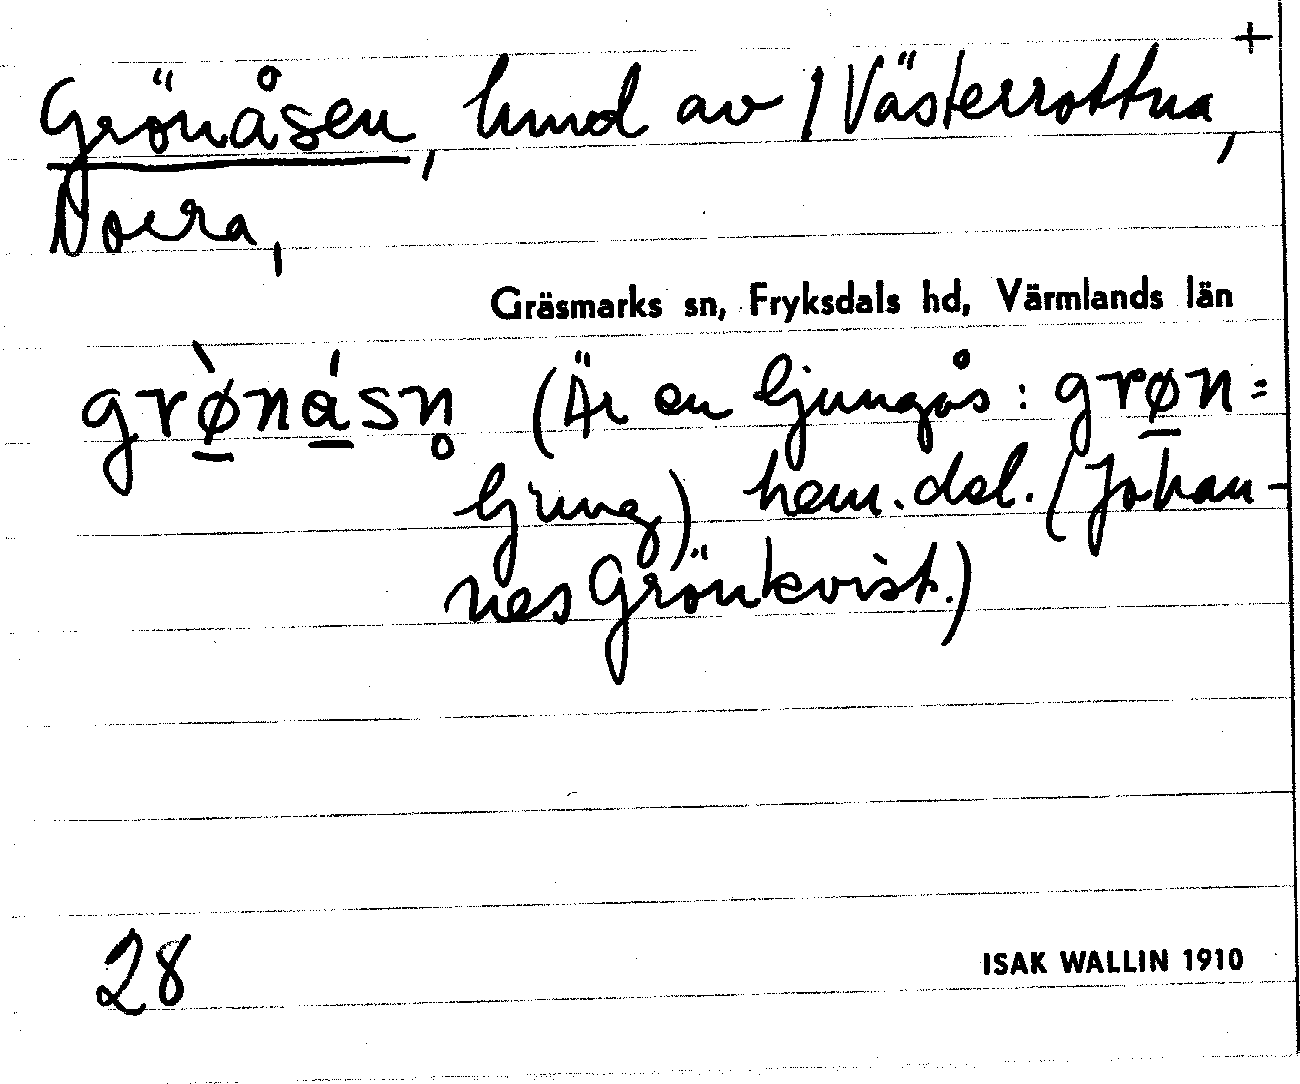 +
Grönåsen, hmd av 1 Västerrottna,
Norra,
Gräsmarks sn, Fryksdals hd, Värmlands län
grø̠̀ná̠sn̥ (Är en ljungås: grø̠n=
ljung) hem. del. (Johan-
nes Grönkvist.)
28
ISAK WALLIN 1910